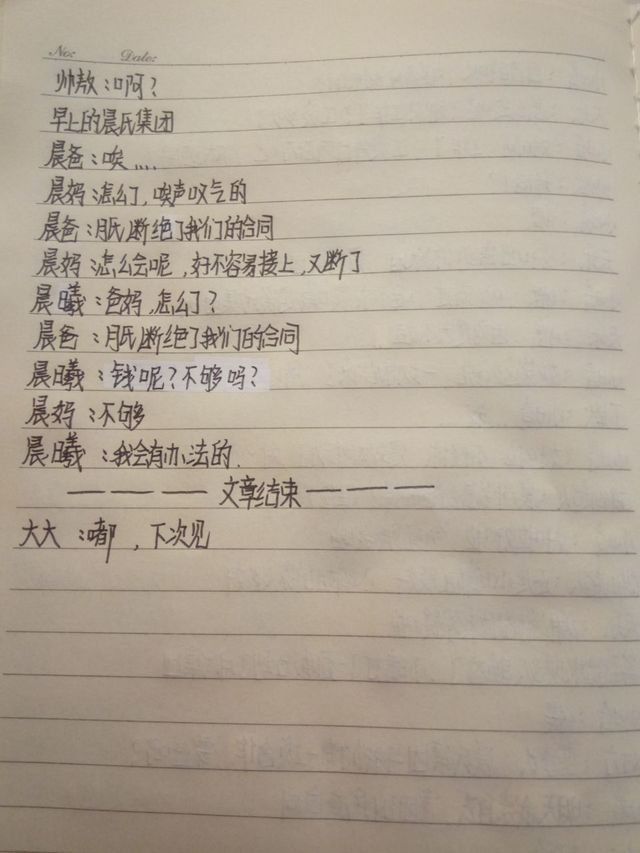 No:    Date:
帅敖：啊？
早上的晨氏集团
晨爸：唉....
晨妈：怎么了，唉声叹气的
晨爸：月氏断绝了我们的合同
晨妈：怎么会呢，好不容易接上，又断了
晨曦：爸妈，怎么了？
晨爸：月氏断绝了我们的合同
晨曦：钱呢？不够吗？
晨妈：不够
晨曦：我会有办法的.
———文章结束———
大大：嘟，下次见